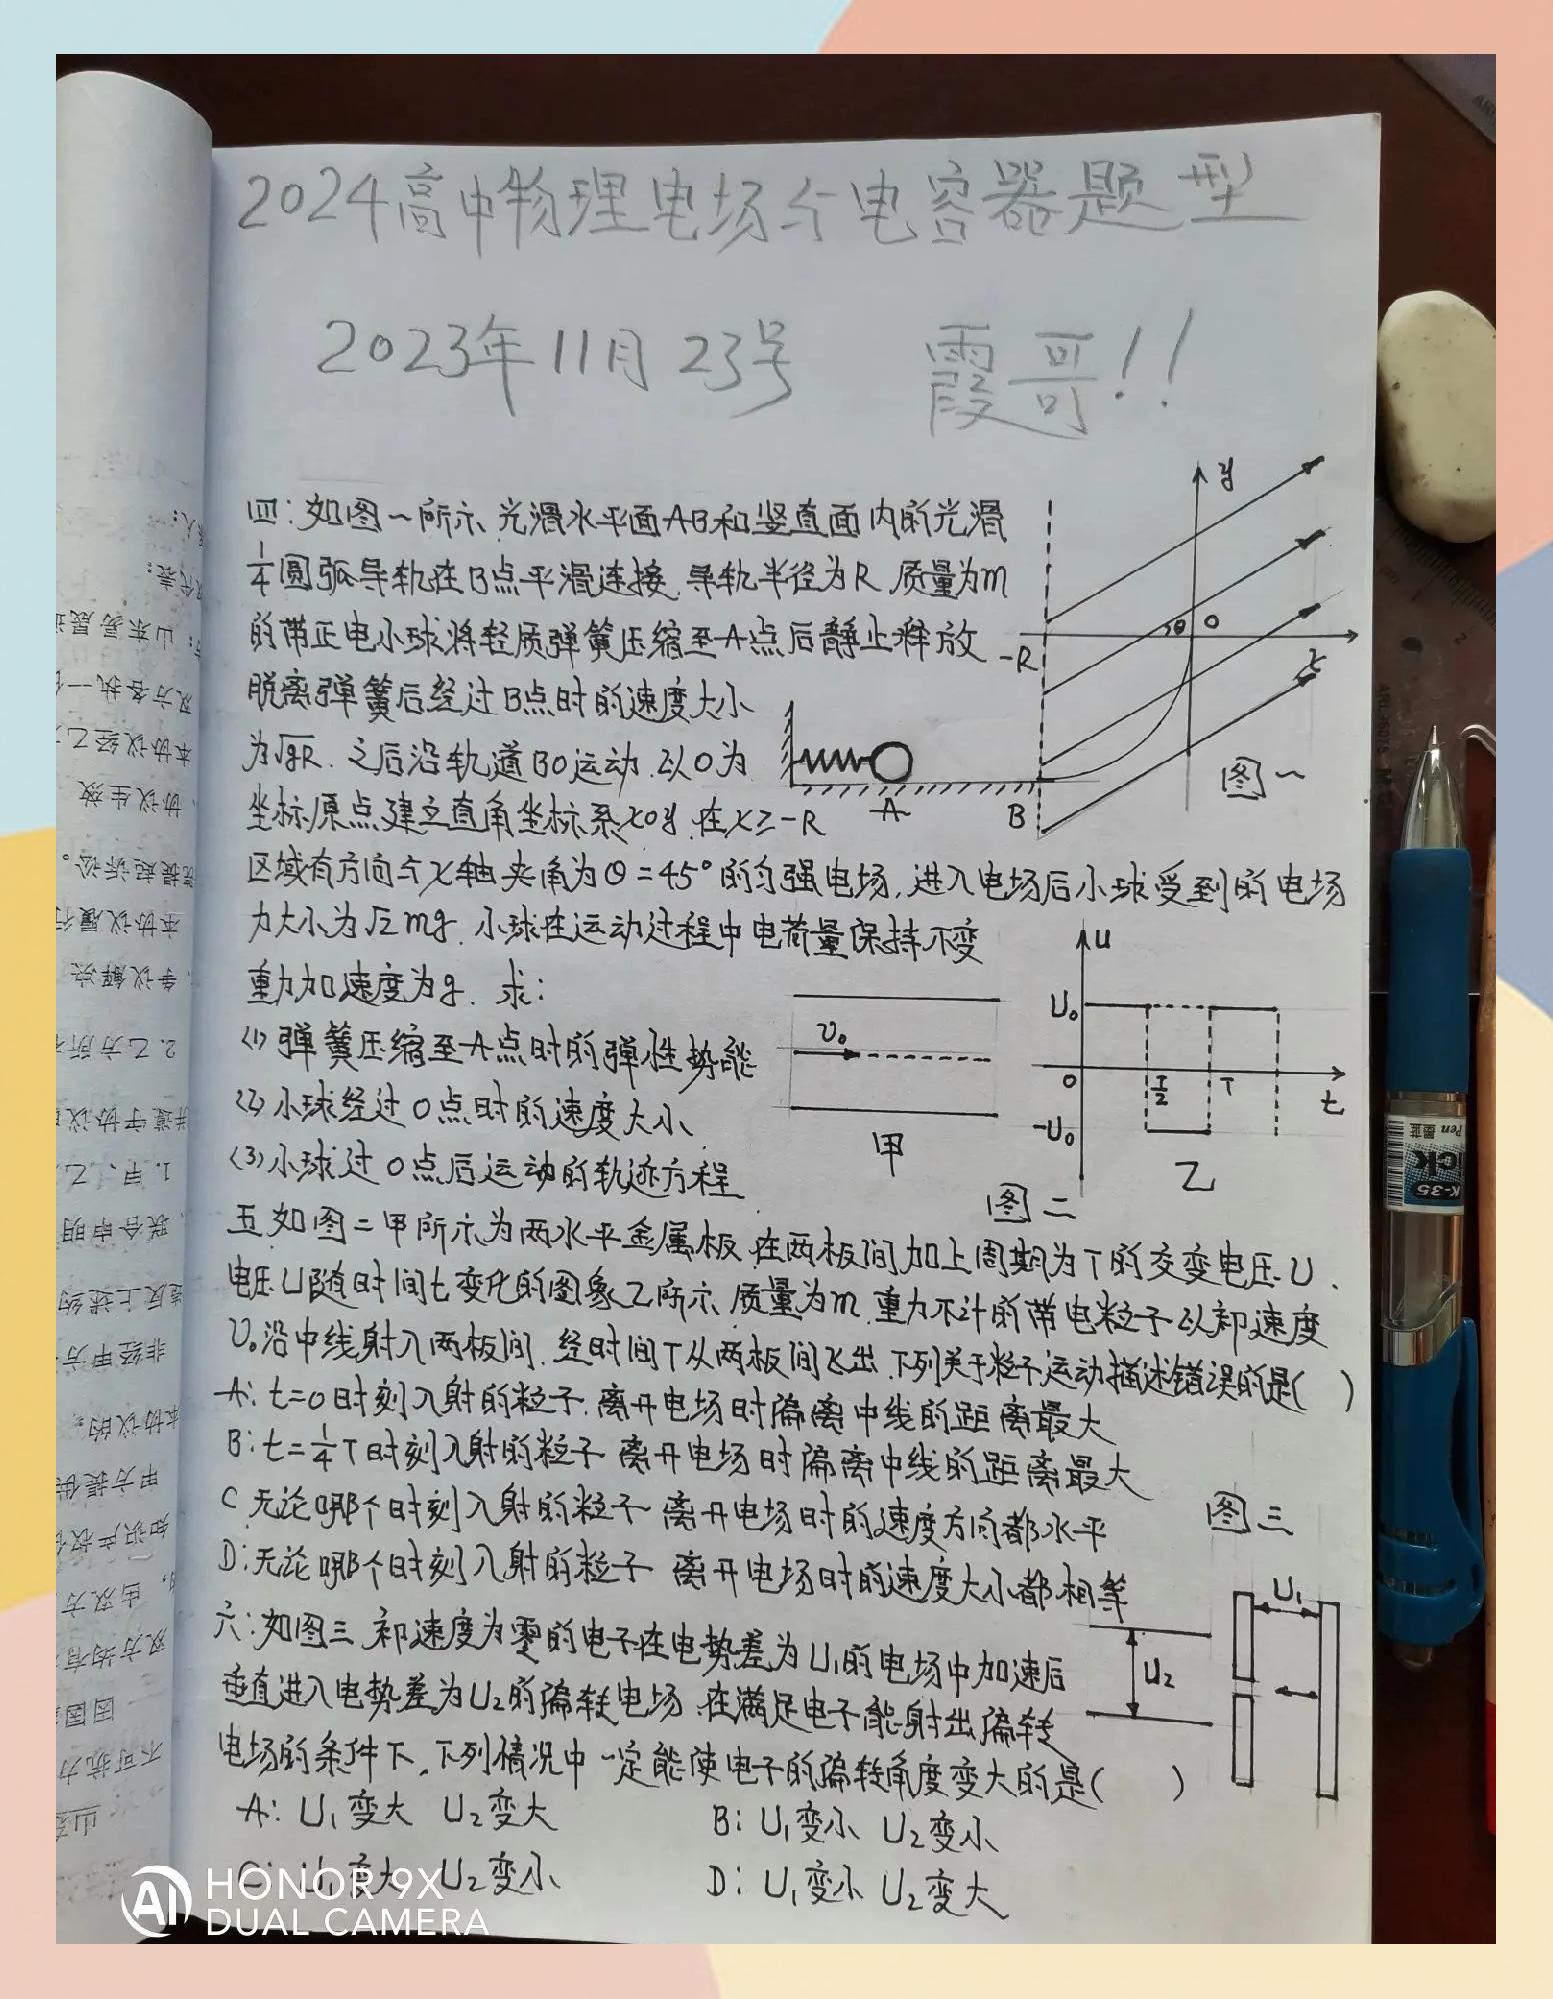 2024高中物理电场与电容器题型
2023年11月23号 霞哥!!
四:如图一所示 光滑水平面AB和竖直面内的光滑
1/4圆弧导轨在B点平滑连接 导轨半径为R 质量为m
的带正电小球将轻质弹簧压缩至A点后静止释放
脱离弹簧后经过B点时的速度大小
为√gR. 之后沿轨道BO运动.以O为
坐标原点建立直角坐标系xoy.在x≥-R
区域有方向与x轴夹角为θ=45°的匀强电场,进入电场后小球受到的电场
力大小为√2mg.小球在运动过程中电荷量保持不变
重力加速度为g.求:
(1)弹簧压缩至A点时的弹性势能
(2)小球经过O点时的速度大小
(3)小球过O点后运动的轨迹方程
y
θ
O
-R
x
A
B
图一
v₀
甲
u
U₀
O
T/2
T
t
-U₀
乙
图二
五 如图二甲所示为两水平金属板 在两板间加上周期为T的交变电压U.
电压U随时间t变化的图象乙所示 质量为m 重力不计的带电粒子以初速度
v₀沿中线射入两板间.经时间T从两板间飞出.下列关于粒子运动描述错误的是( )
A:t=0时刻入射的粒子.离开电场时偏离中线的距离最大
B:t=1/4T时刻入射的粒子 离开电场时偏离中线的距离最大
C 无论哪个时刻入射的粒子 离开电场时的速度方向都水平
D:无论哪个时刻入射的粒子 离开电场时的速度大小都相等
图三
U₁
U₂
六:如图三 初速度为零的电子在电势差为U₁的电场中加速后
垂直进入电势差为U₂的偏转电场.在满足电子能射出偏转
电场的条件下.下列情况中一定能使电子的偏转角度变大的是( )
A:U₁变大 U₂变大 B:U₁变小 U₂变小
C:U₁变大 U₂变小 D:U₁变小 U₂变大
AI HONOR 9X
DUAL CAMERA